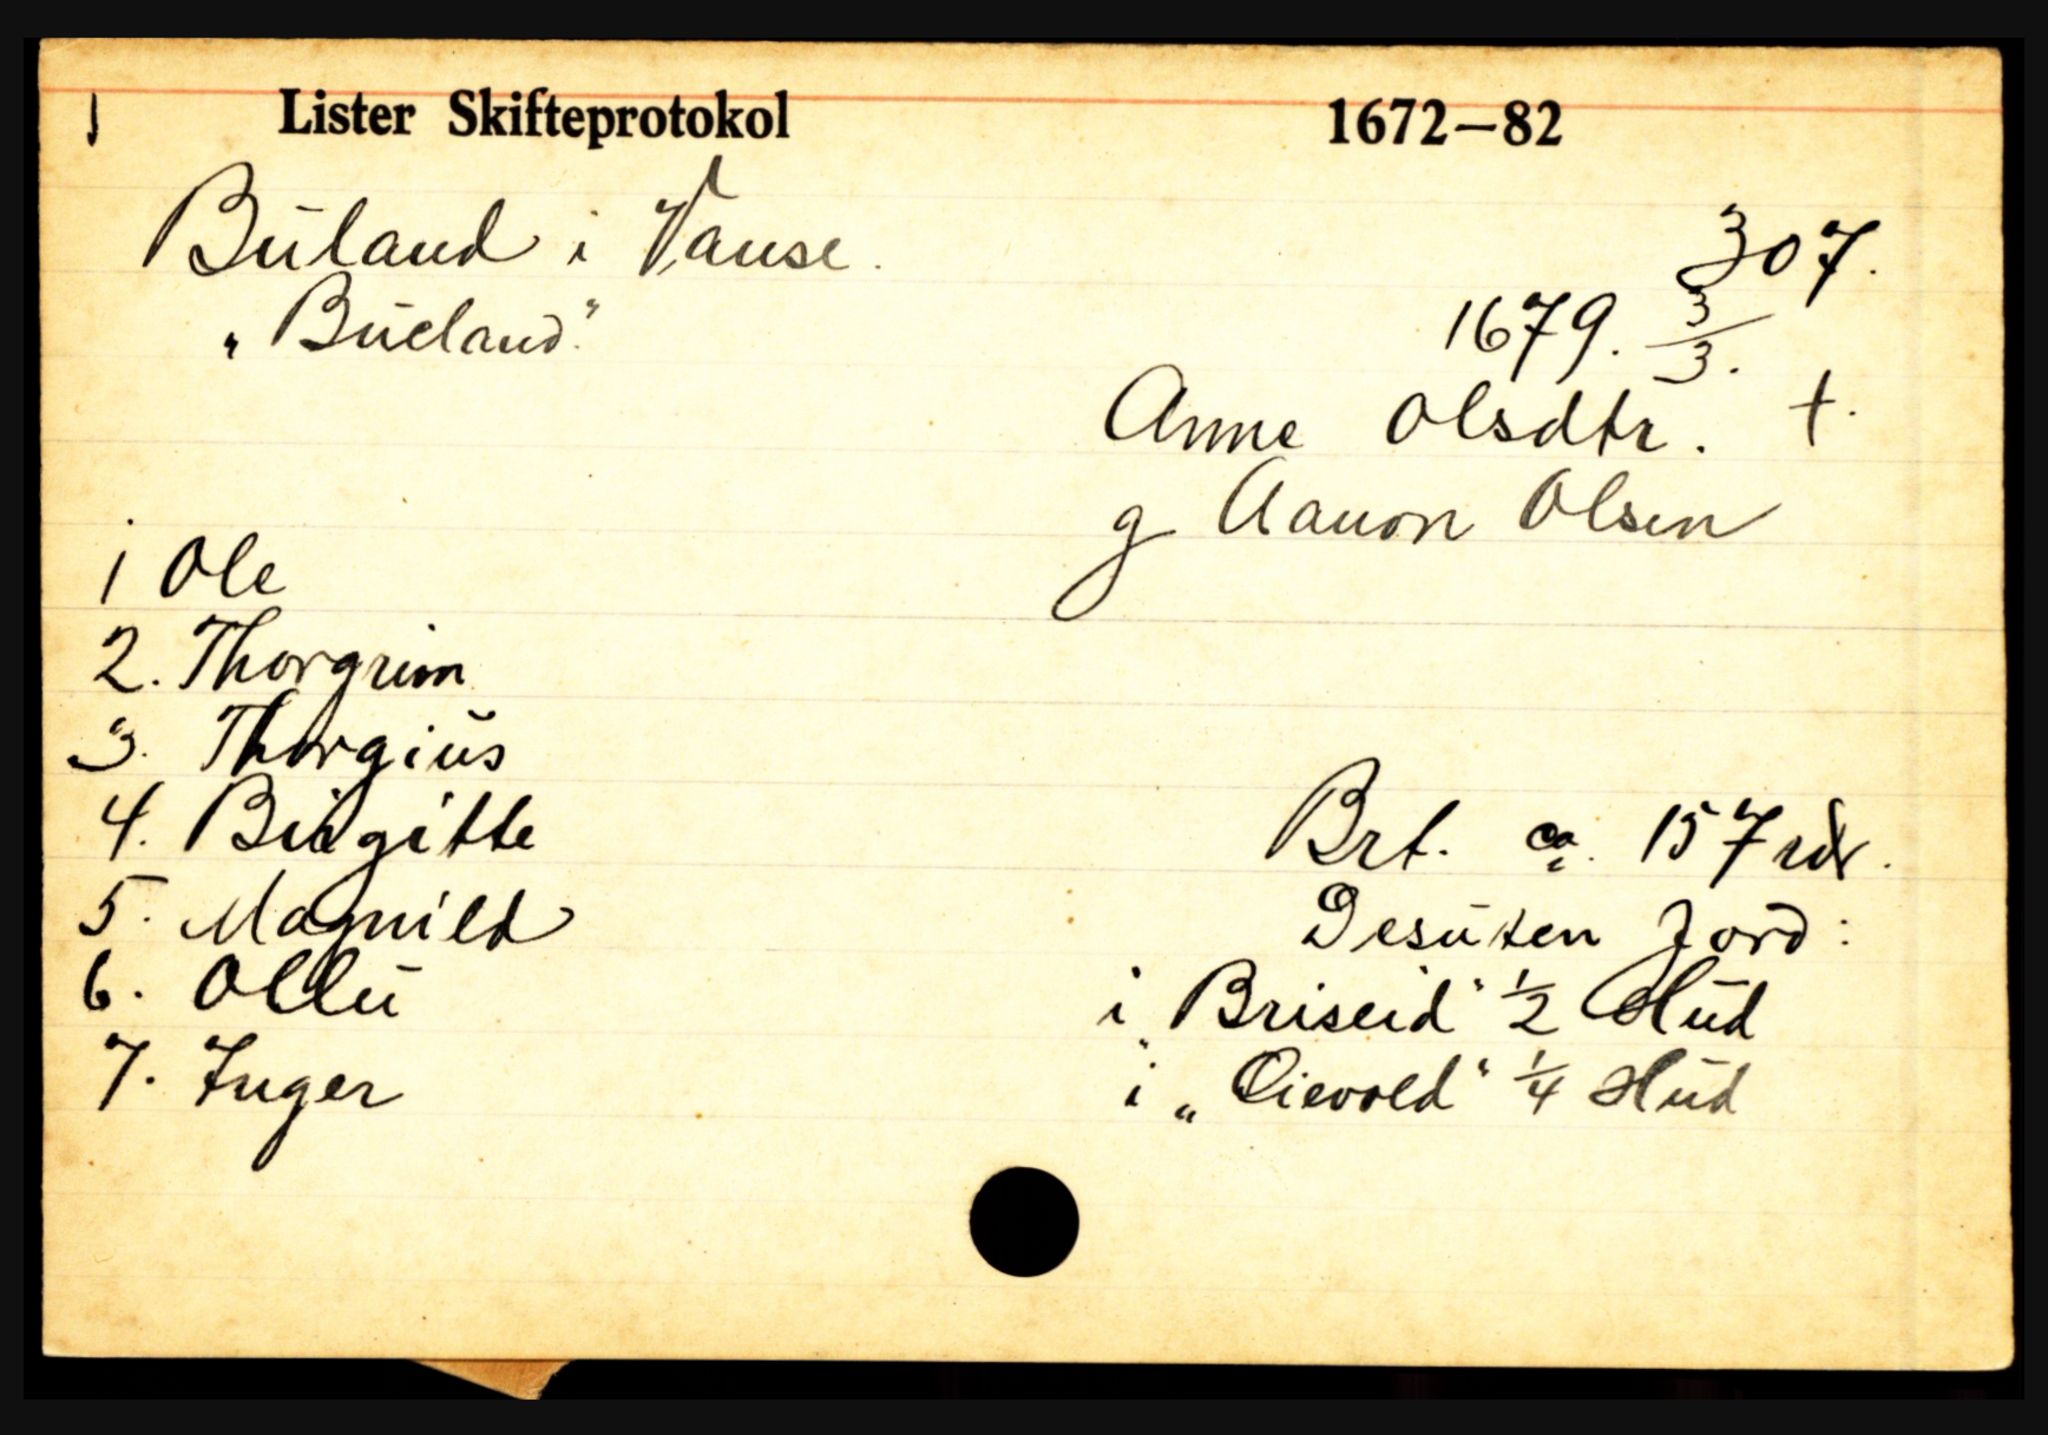 1 Lister Skifteprotokol 1672—82
Buland i Vanse.
307.
„Bueland."
1679. 3/3.
Anne Olsdtr. †.
g Aanon Olsen
1 Ole
2. Thorgrim
3. Thorgius
4. Birgitte
5. Magnild
6. Ollu
7. Inger
Brt. ca. 157 rdr.
Desuten Jord:
i „Briseid" 1/2 Hud
i „Eievold" 1/4 Hud